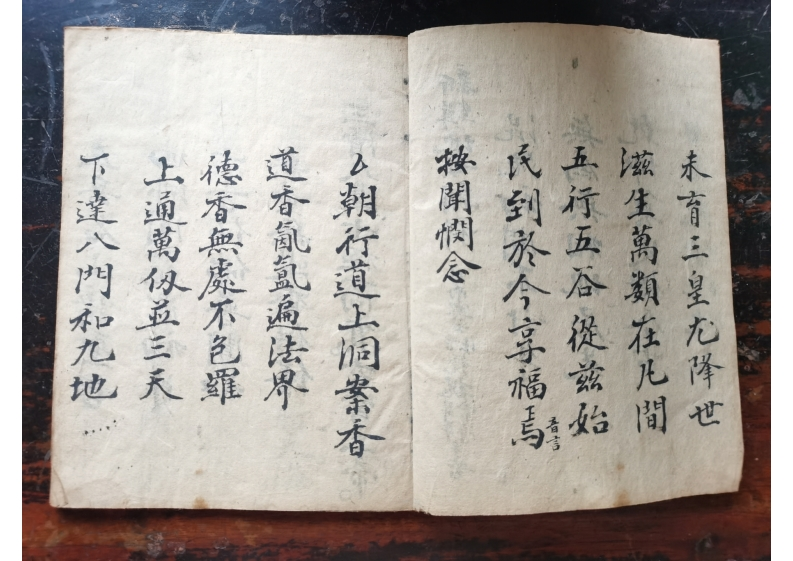 未育三皇尤降世
滋生萬類在凡間
五行五谷從茲始
民到於今享福焉音言
按聞憫念
朝行道上洞案香
道香氤氳遍法界
德香無處不包羅
上通萬仭並三天
下達八門和九地